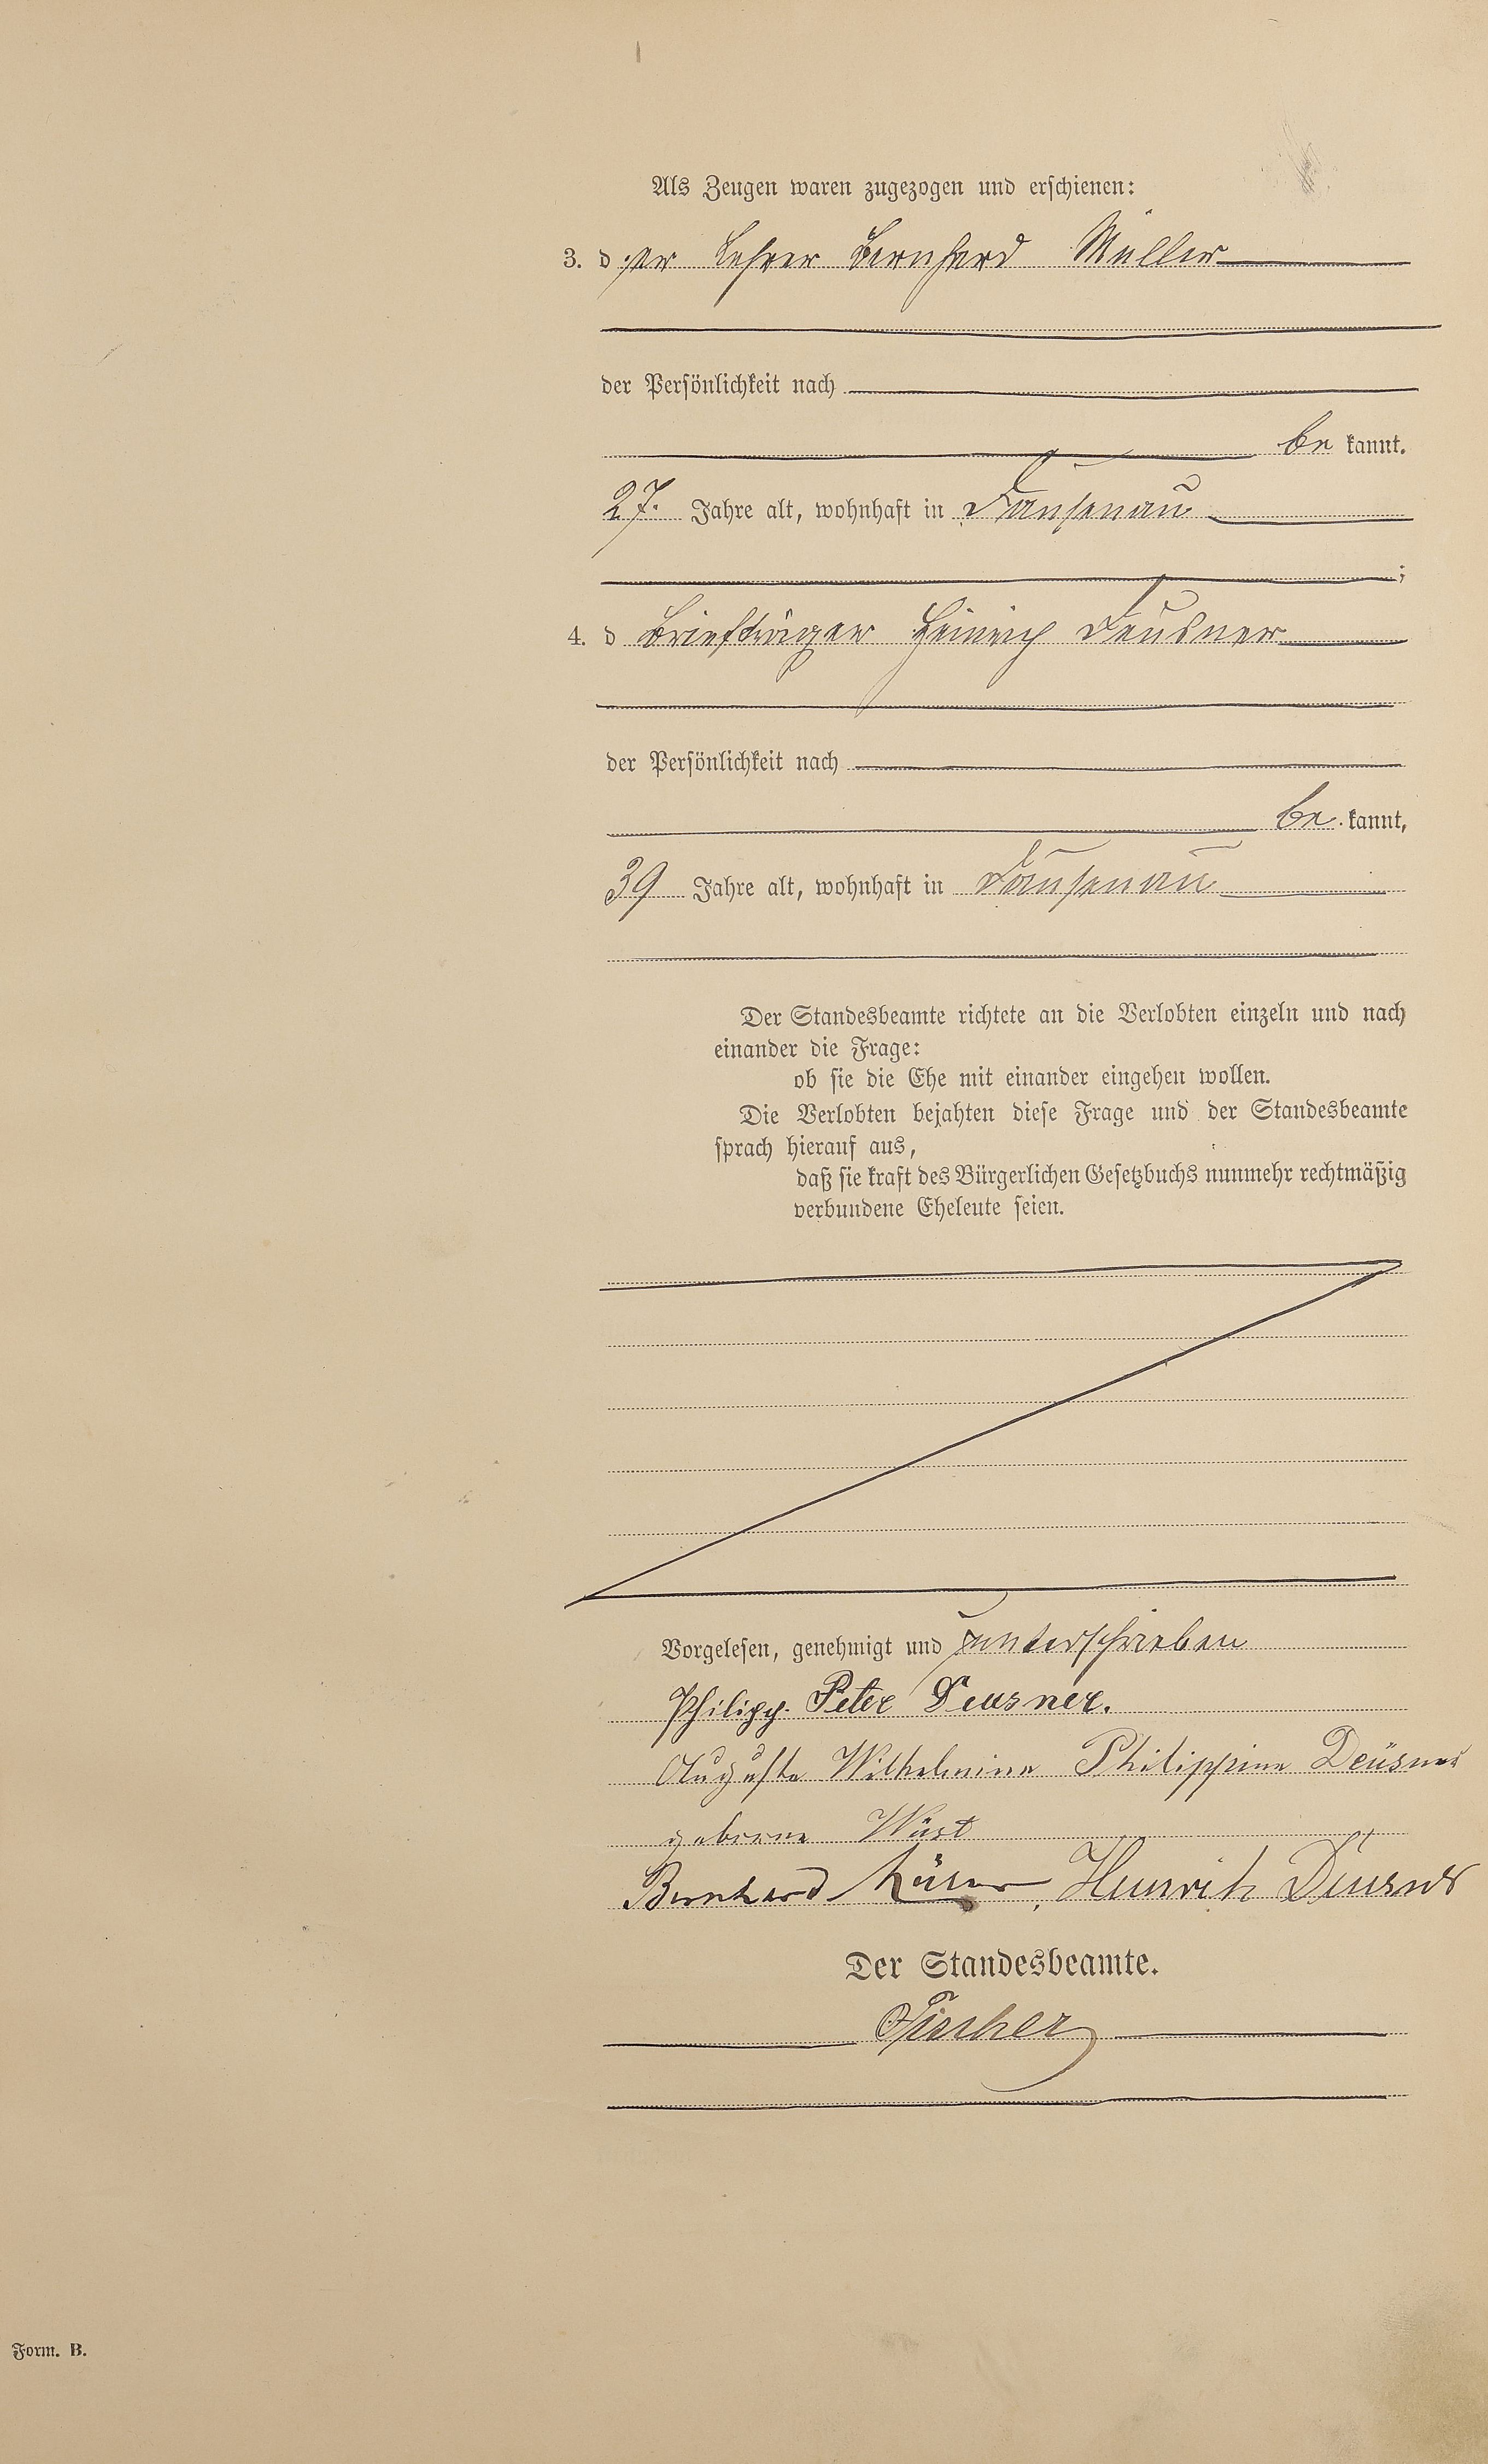 Als Zeugen waren zugezogen und erschienen:
3. der Lehrer Bernhard Müller
der Persönlichkeit nach
be kannt.
27. Jahre alt, wohnhaft in Dausenau
;
4. d Briefträger Heinrich Deusner
der Persönlichkeit nach
be kannt,
39 Jahre alt, wohnhaft in Dausenau
Der Standesbeamte richtete an die Verlobten einzeln und nach
einander die Frage:
ob sie die Ehe mit einander eingehen wollen.
Die Verlobten bejahten diese Frage und der Standesbeamte
sprach hierauf aus,
daß sie kraft des Bürgerlichen Gesetzbuchs nunmehr rechtmäßig
verbundene Eheleute seien.
Vorgelesen, genehmigt und unterschrieben
Philipp Peter Deusner.
Auguste Wilhelmine Philippine Deusner
geborene Wüst
Bernhard Müller, Heinrich Deusner
Der Standesbeamte.
Fischer
Form. B.